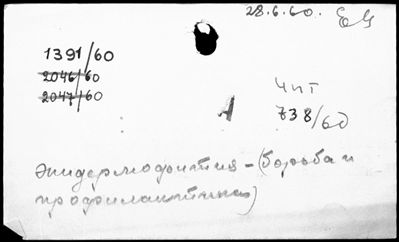 28.6.60.
1391/60
2046/60
2047/60
Чит
738/60
эпидермофития – (борьба и
профилактика)